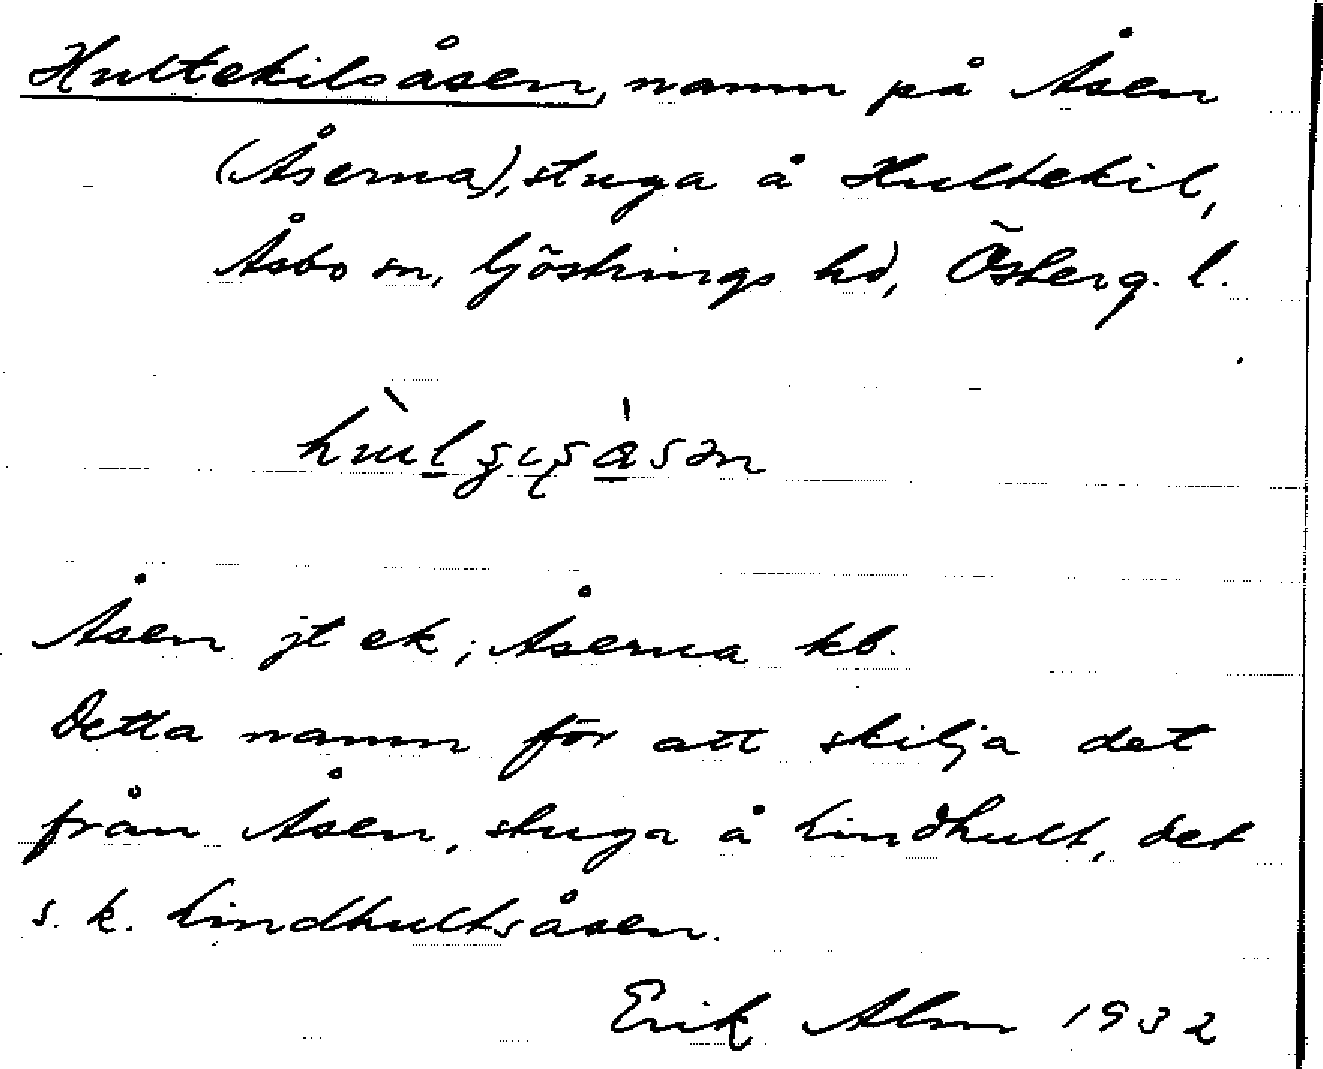 Hultekilsåsen, namn på Åsen
(Åserna), stuga å Hultekil,
Åsbo sn, Göstrings hd, Österg. l.
Åsen jt ek; Åserna kb.
Detta namn för att skilja det
från Åsen, stuga å Lindhult, det
s. k. Lindhultsåsen.
Erik Alm 1932